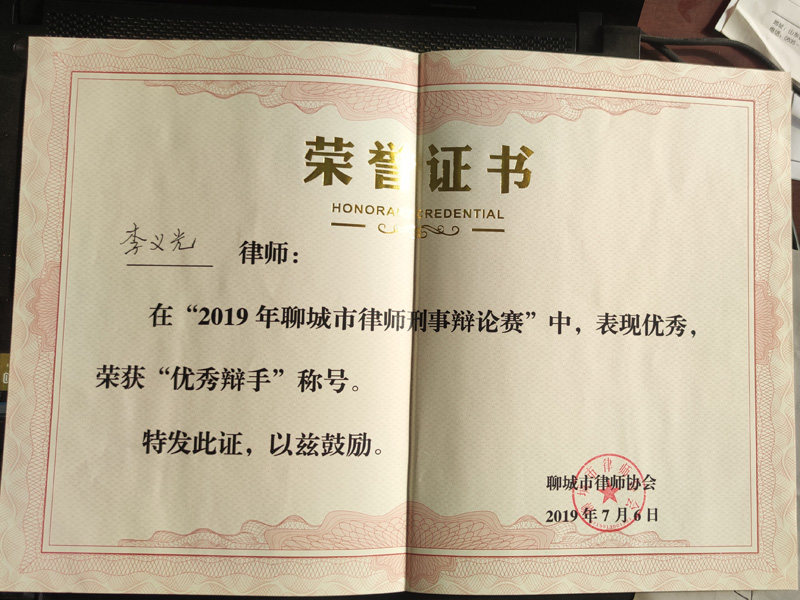 荣誉证书
HONORARY CREDENTIAL
李义光 律师：
在“2019年聊城市律师刑事辩论赛”中，表现优秀，
荣获“优秀辩手”称号。
特发此证，以兹鼓励。
聊城市律师协会
2019年7月6日